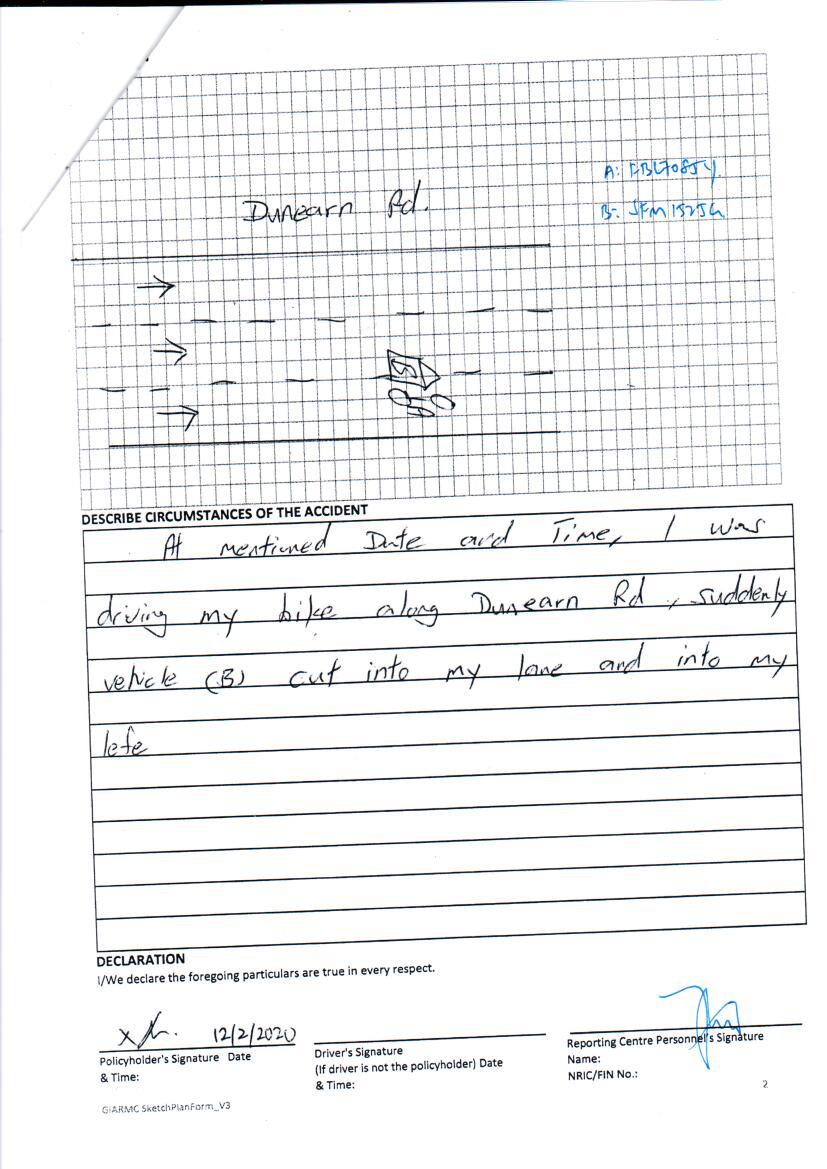 Dunearn Rd.
A: FBL7085Y
B: SFM1525G
B
A
DESCRIBE CIRCUMSTANCES OF THE ACCIDENT
At mentioned Date and Time, I was
driving my bike along Dunearn Rd, suddenly
vehicle (B) cut into my lane and into my
lefe
DECLARATION
I/We declare the foregoing particulars are true in every respect.
12/2/2020
Policyholder's Signature Date
& Time:
Driver's Signature
(If driver is not the policyholder) Date
& Time:
Reporting Centre Personnel's Signature
Name:
NRIC/FIN No.:
2
GIARMC SketchPlanForm_V3